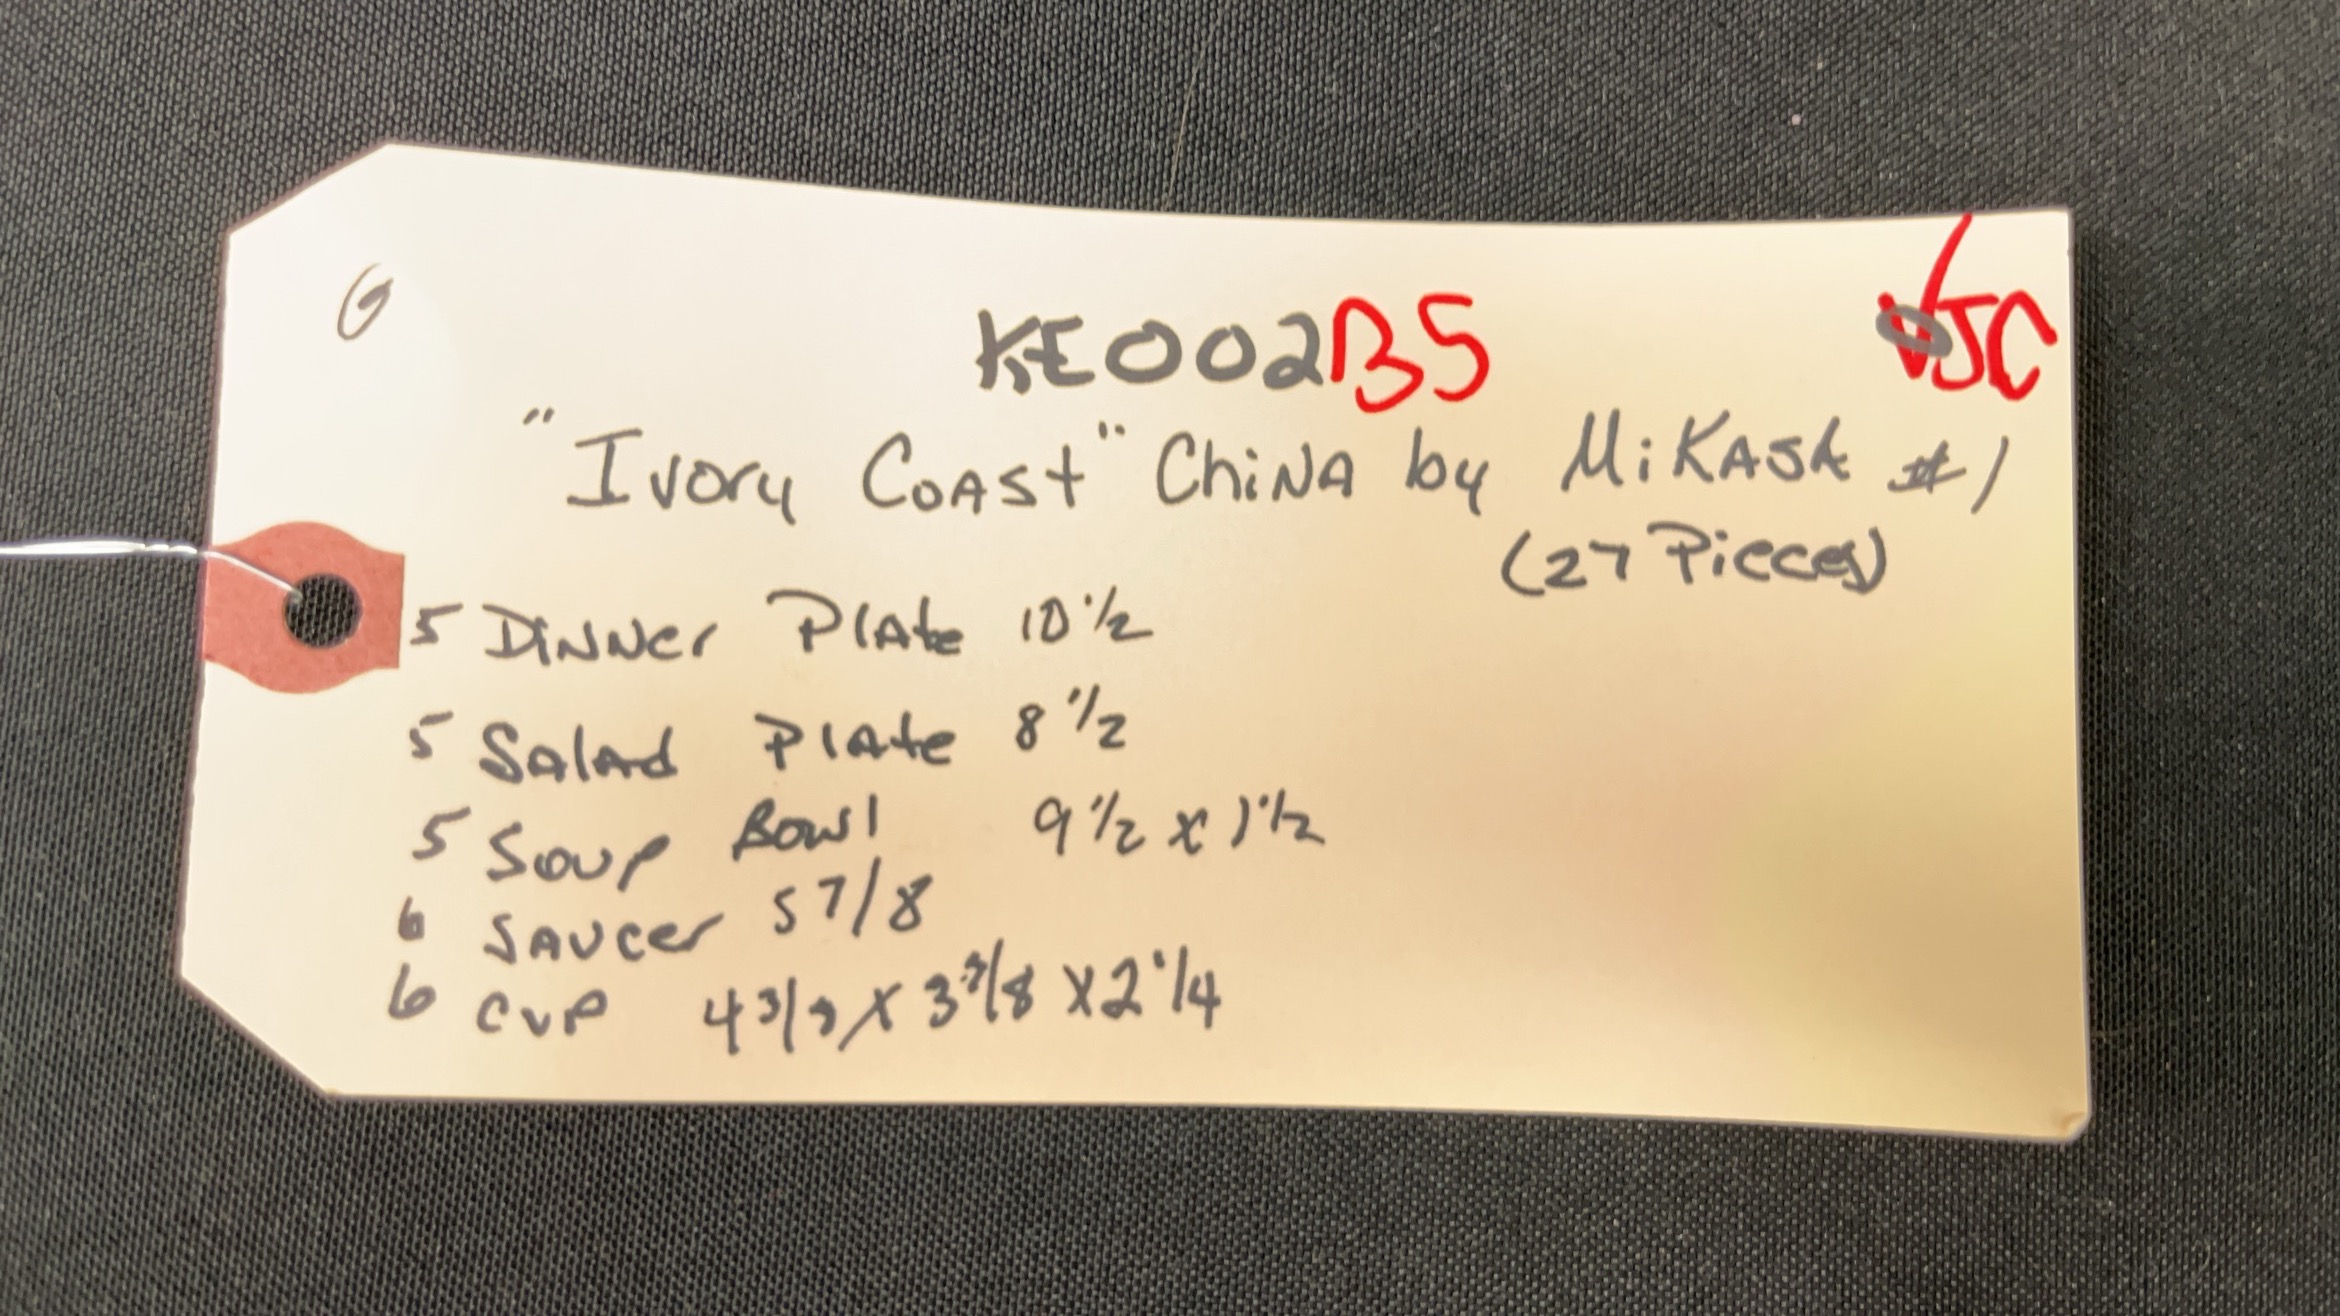 G
KE002B5
✓JC
"Ivory Coast" China by Mikasa #1
(27 Pieces)
5 Dinner Plate 10 1/2
5 Salad Plate 8 1/2
5 Soup Bowl 9 1/2 x 1 1/2
6 Saucer 5 7/8
6 Cup x 2 1/4